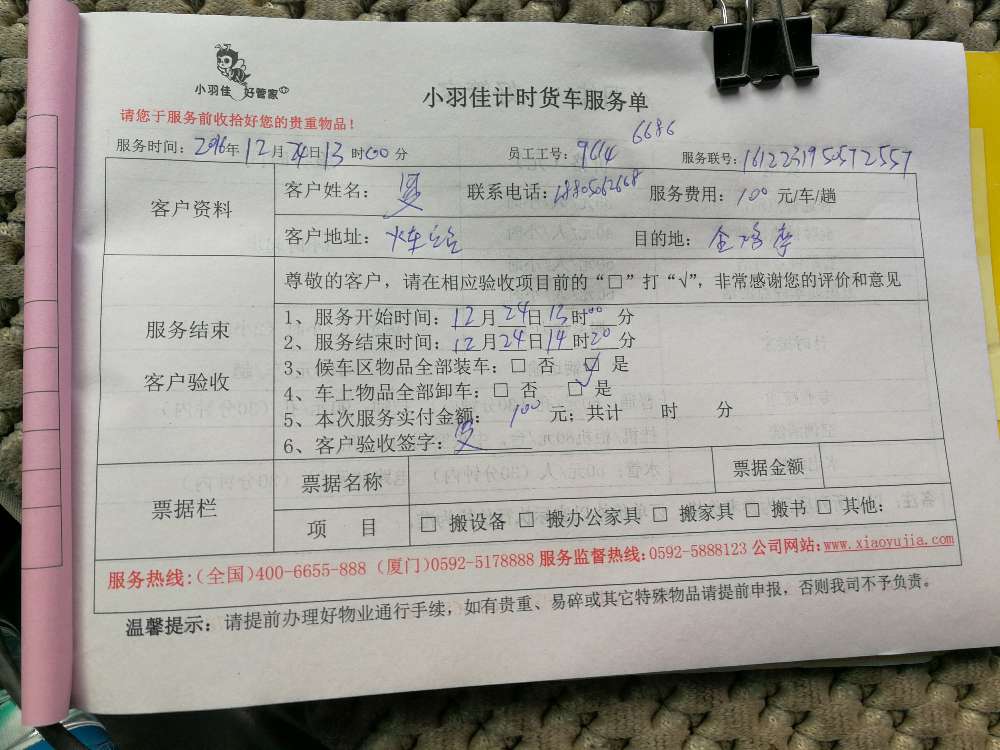 小羽佳 好管家
小羽佳计时货车服务单
请您于服务前收拾好您的贵重物品！
6686
服务时间：2016年12月24日13时00分 员工工号：9614 服务联号：1612231950572557
客户资料
客户姓名： 联系电话：18805062668 服务费用：100元/车/趟
客户地址：火车 目的地：
服务结束
客户验收
尊敬的客户，请在相应验收项目前的“□”打“√”，非常感谢您的评价和意见
1、服务开始时间：12月24日13时00分
2、服务结束时间：12月24日14时20分
3、候车区物品全部装车：□ 否 ☑ 是
4、车上物品全部卸车：□ 否 ☑ 是
5、本次服务实付金额：100元；共计 时 分
6、客户验收签字：
票据栏
票据名称 票据金额
项 目 □ 搬设备 □ 搬办公家具 □ 搬家具 □ 搬书 □ 其他：
服务热线：(全国)400-6655-888 (厦门)0592-5178888 服务监督热线：0592-5888123 公司网站：www.xiaoyujia.com
温馨提示：请提前办理好物业通行手续，如有贵重、易碎或其它特殊物品请提前申报，否则我司不予负责。